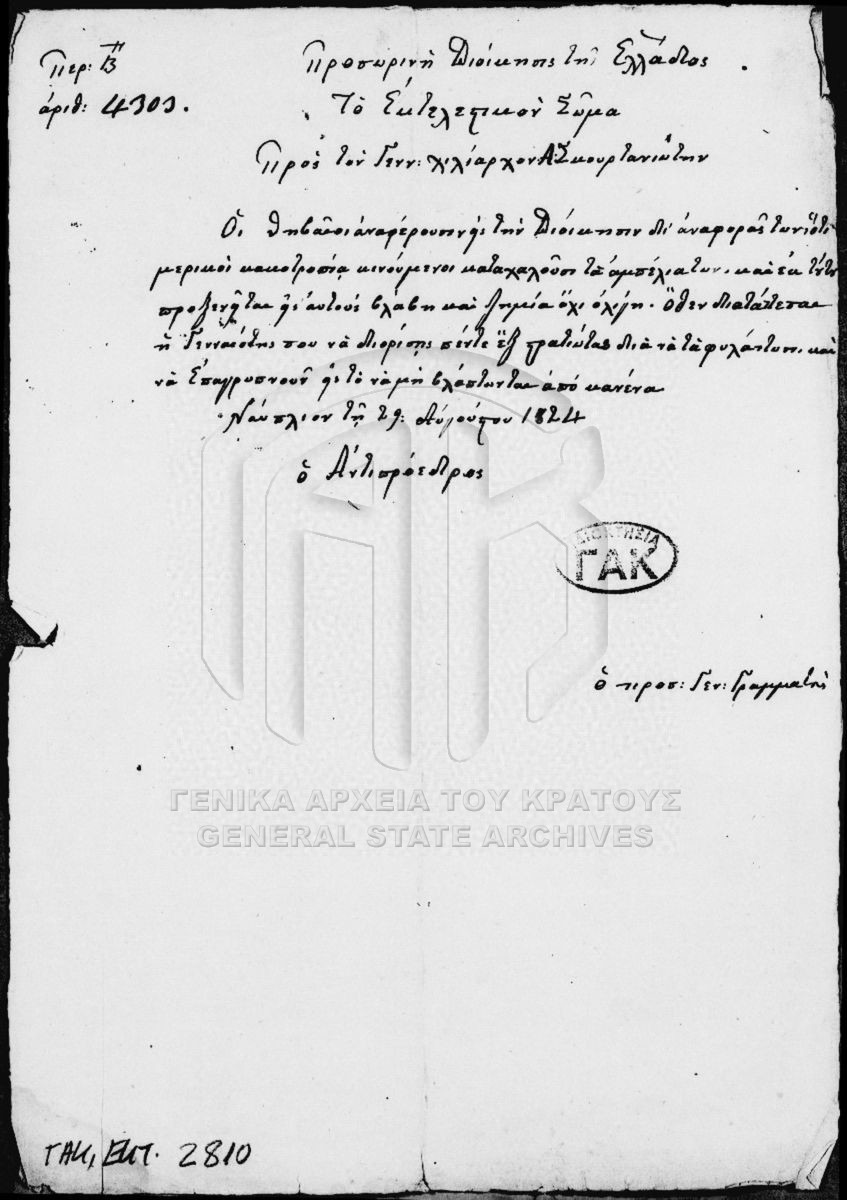 Περ: Β
ἀριθ: 4303.
Προσωρινὴ Διοίκησις τῆς Ἑλλάδος
Τὸ Ἐκτελεστικὸν Σῶμα
Πρὸς τὸν Γενν: χιλίαρχον Α: Σκουρτανιώτην
Οἱ Θηβαῖοι ἀναφέρουσιν εἰς τὴν Διοίκησιν δι' ἀναφορᾶς των ὅτι
μερικοὶ κακοτροπίᾳ κινούμενοι καταχαλοῦσι τὰ ἀμπέλια των. καὶ ἐκ τούτου
προξενῆται εἰς αὐτοὺς βλάβη καὶ ζημία ὄχι ὀλίγη. Ὅθεν διατάττεται
ἡ Γενναιότης σου νὰ διορίσῃς πέντε ἓξ στρατιώτας διὰ νὰ τὰ φυλάττωσι. καὶ
νὰ ἐπαγρυπνοῦν εἰς τὸ νὰ μὴ βλάπτωνται ἀπὸ κανένα
Ναύπλιον τῇ 29: Αὐγούστου 1824
ὁ Ἀντιπρόεδρος
ΙΔΙΟΚΤΗΣΙΑ
ΓΑΚ
ὁ προσ: Γεν: Γραμματεὺς
ΓΕΝΙΚΑ ΑΡΧΕΙΑ ΤΟΥ ΚΡΑΤΟΥΣ
GENERAL STATE ARCHIVES
ΓΑΚ, ΕΚΤ. 2810